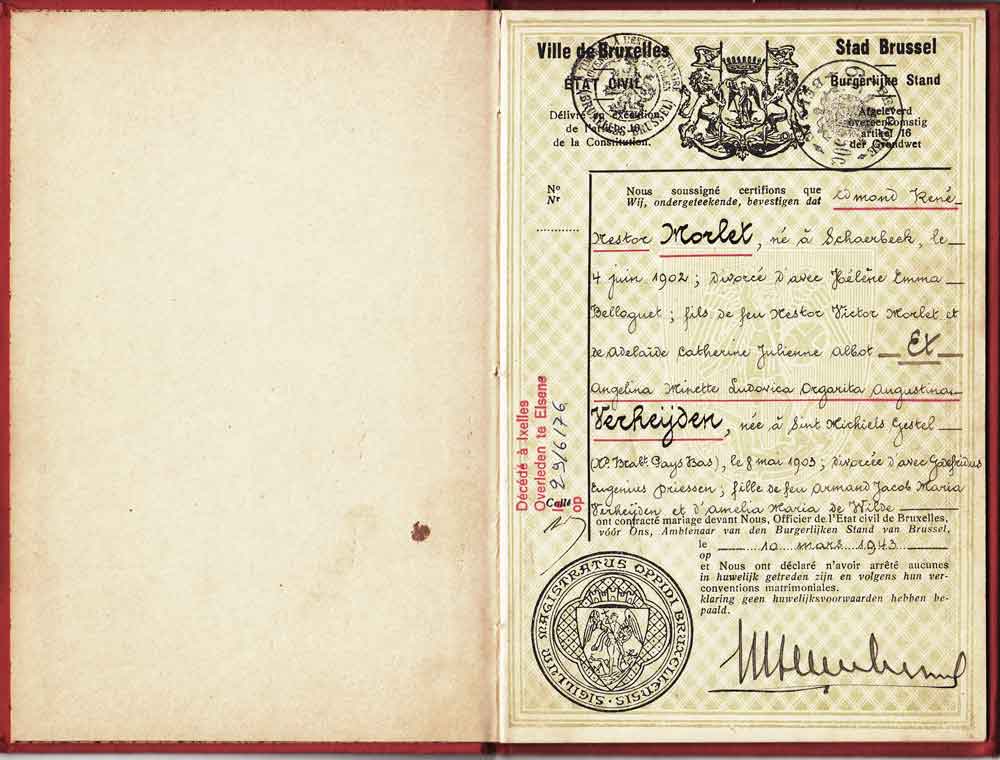 Ville de Bruxelles
ÉTAT CIVIL
Délivré en exécution
de l'article 16
de la Constitution.
Stad Brussel
Burgerlijke Stand
Afgeleverd
overeenkomstig
artikel 16
der Grondwet
No
Nr
Nous soussigné certifions que Edmond René
Wij, ondergeteekende, bevestigen dat
Nestor Morlet, né à Schaerbeek, le
4 juin 1902 ; divorcé d'avec Hélène Emma
Belloguet ; fils de feu Nestor Victor Morlet et
de Adelaïde Catherine Julienne Albot Et
Angelina Minette Ludovica Orgarita Augustina
Verheijden, née à Sint Michiels Gestel
(Nd Brabt. Pays Bas), le 8 mai 1903 ; divorcée d'avec Godefridus
Eugenius Driessen ; fille de feu Armand Jacob Maria
Verheijden et d'Amelia Maria De Wilde
ont contracté mariage devant Nous, Officier de l'Etat civil de Bruxelles,
vóór Ons, Ambtenaar van den Burgerlijken Stand van Brussel,
le
op
10 mars 1943
et Nous ont déclaré n'avoir arrêté aucunes
in huwelijk getreden zijn en volgens hun ver-
conventions matrimoniales.
klaring geen huwelijksvoorwaarden hebben be-
paald.
Décédé à Ixelles
Overleden te Elsene
le 29/6/76
op
Colle
SIGILLUM MAGISTRATUS OPPIDI BRUXELLENSIS